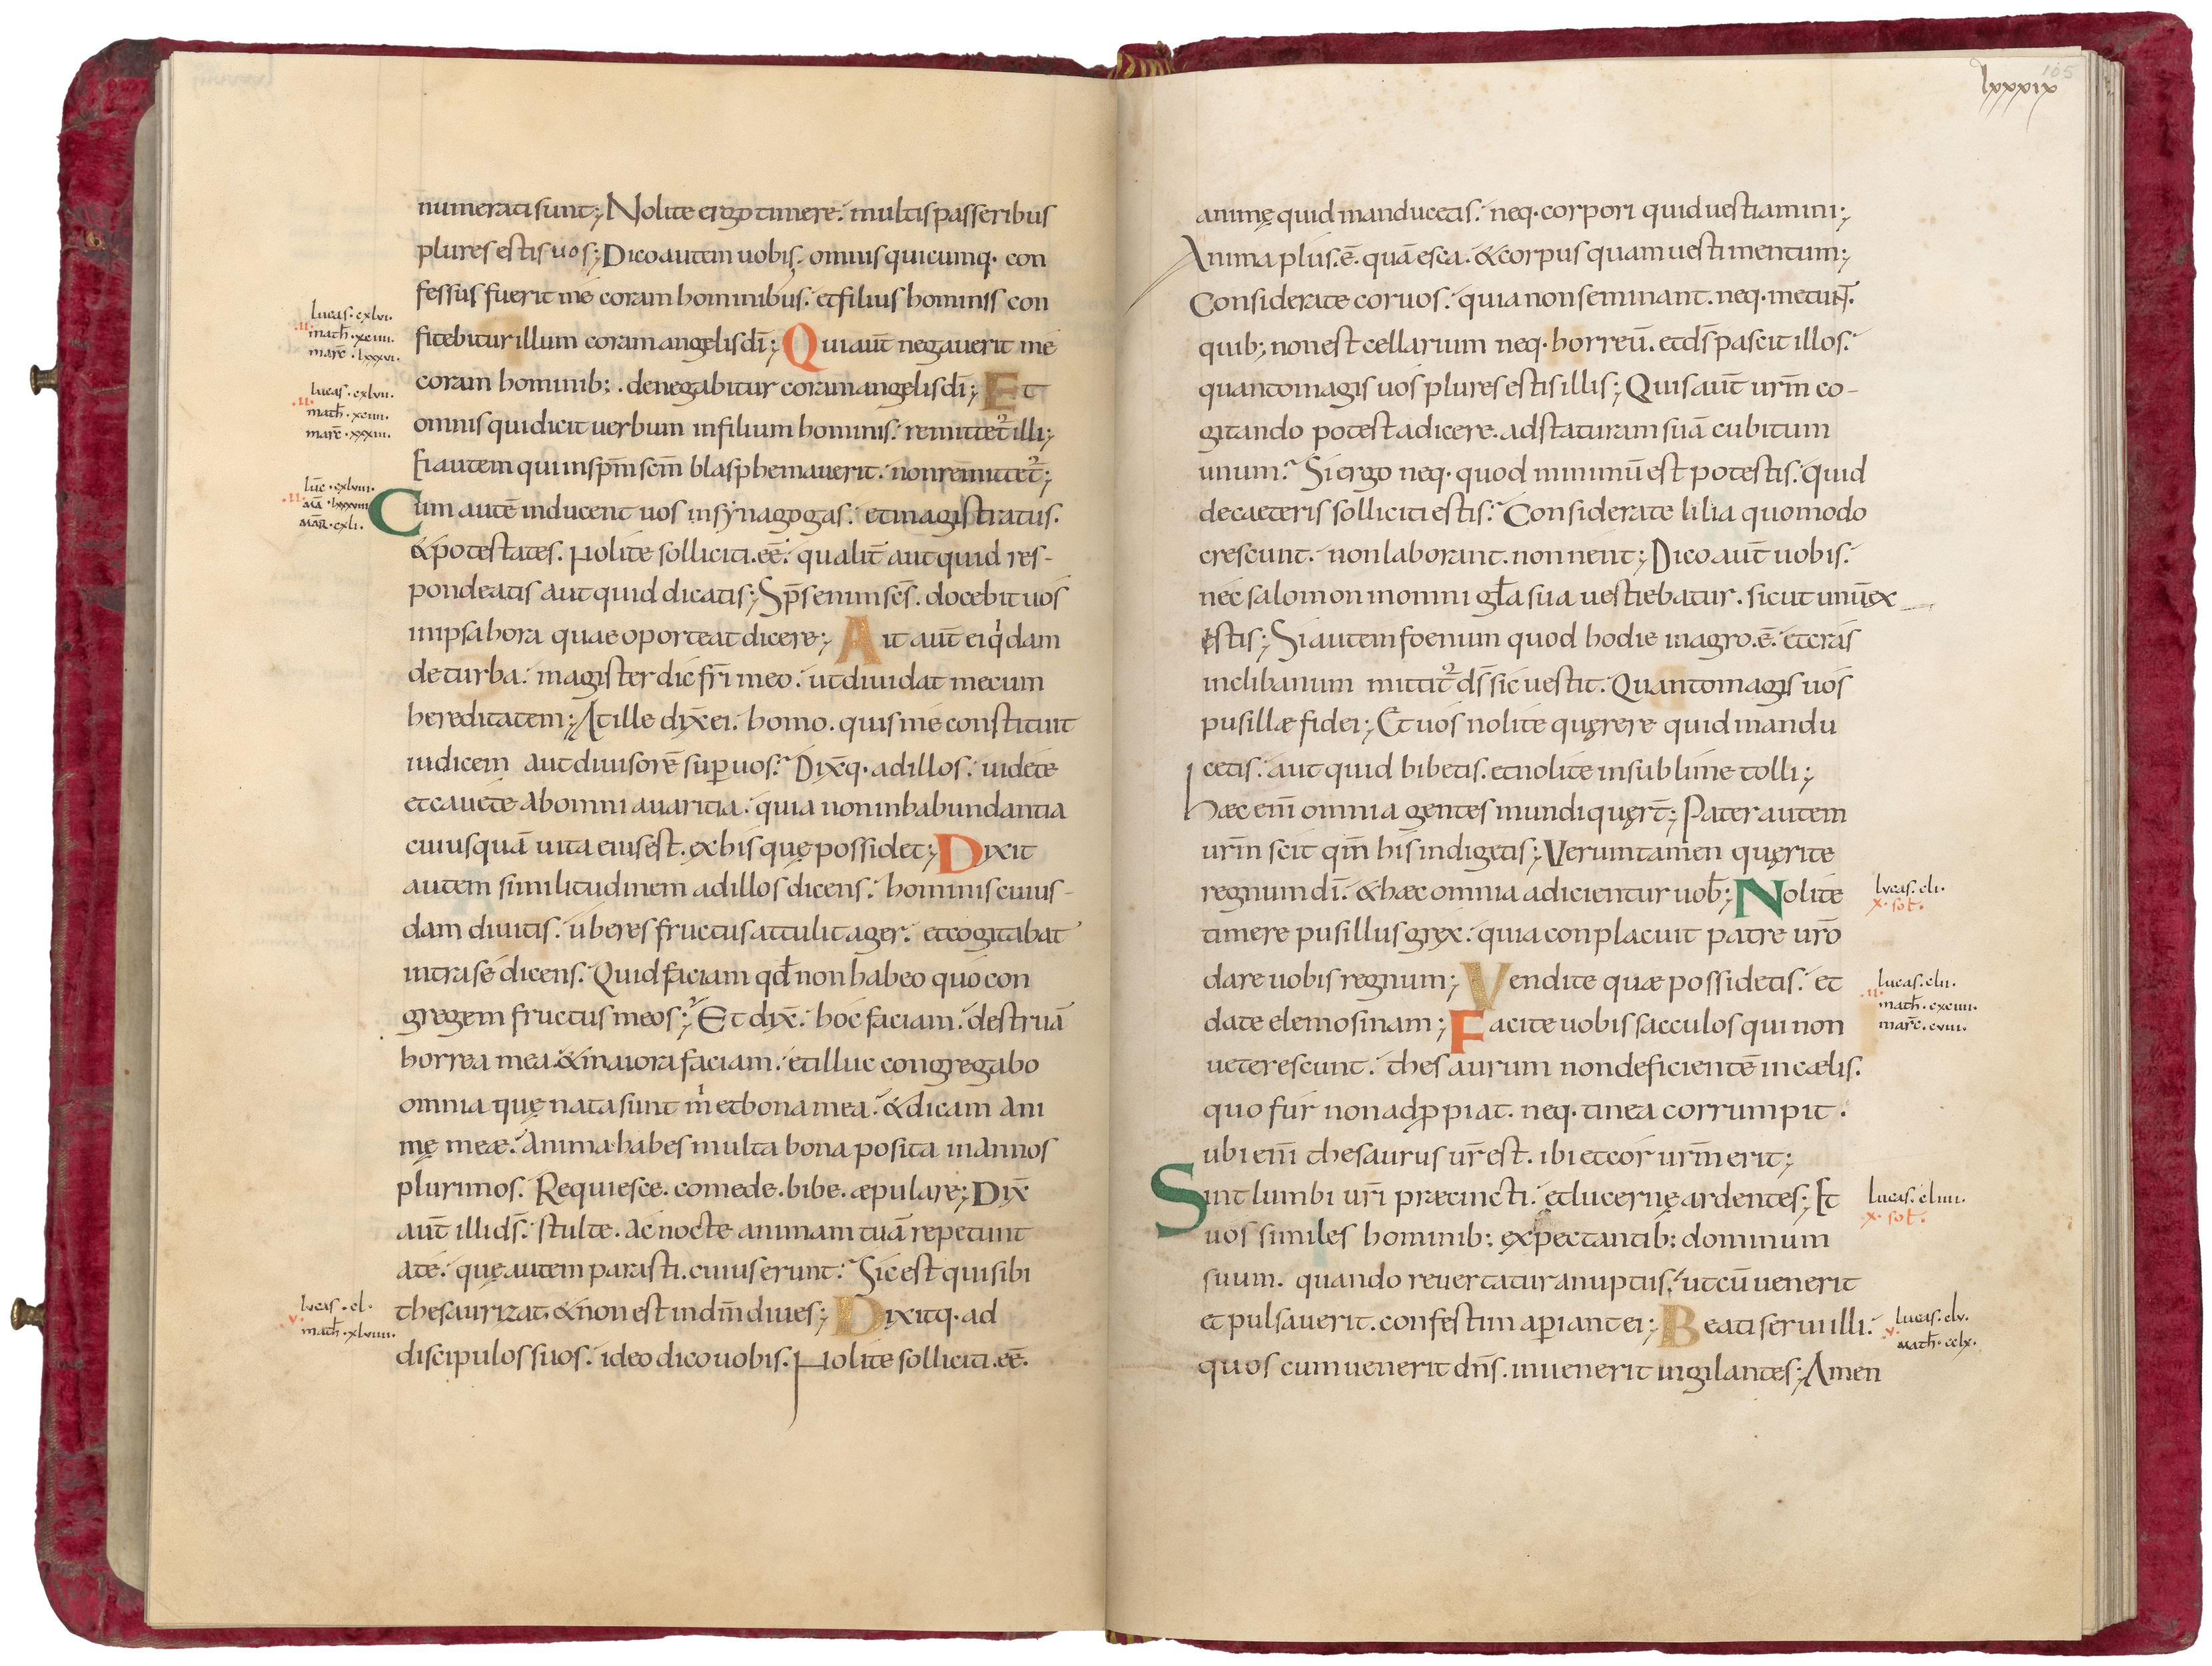 numerati sunt; Nolite ergo timere. multis passeribus
plures estis uos; Dico autem uobis. omnis quicumq· con
fessus fuerit me coram hominibus. et filius hominis con
lucas. cxlvi.
.II.
math̄. xciiii.
marc̄. lxxxvi.
fitebitur illum coram angelis dī; Qui aut̄ negauerit me
coram hominib;. denegabitur coram angelis dī; Et
lucas. cxlvii.
.II.
math̄. xciiii.
marc̄. xxxiii.
omnis qui dicit uerbum in filium hominis. remittet᷑ illi;
Ei autem qui in sp̄m sc̄m blasphemauerit. non remittet᷑;
luc̄. cxlviii.
.II.
mar̄. cxli.
Cum autē inducent uos in synagogas. et magistratus.
& potestates. Nolite solliciti. eē. qualit̄ aut quid res-
pondeatis aut quid dicatis; Sp̄s enim sc̄s. docebit uos
in ipsa hora quae oporteat dicere; Ait aut̄ ei qͥdam
de turba. magister dic fr̄i meo. ut diuidat mecum
hereditatem; At ille dix̄ ei. homo. quis me constituit
iudicem aut diuisorē sup̱ uos. Dix̄q· ad illos. uidete
et cauete ab omni auaritia. quia non in habundantia
cuiusquā uita eius est. ex his quę possidet; Dixit
autem similitudinem ad illos dicens. hominis cuius-
dam diuitis. uberes fructus attulit ager. et cogitabat
intra se dicens. Quid faciam qđ non habeo quo con
gregem fructus meos; Et dix̄. hoc faciam. destruā
horrea mea. & maiora faciam. et illuc congregabo
omnia quę nata sunt mͥ et bona mea. & dicam ani
mę meæ. anima habes multa bona posita in annos
plurimos. Requiesce. comede. bibe. æpulare; Dix̄
aut̄ illi ds̄. stulte. ac nocte animam tuā repetunt
a te. quę autem parasti. cuius erunt. Sic est qui sibi
lucas. cl.
v.
math̄. xlviiii.
thesaurizat. & non est in dm̄ diues; Dixitq· ad
discipulos suos. ideo dico uobis. Nolite solliciti. eē.
105
lxxxix
animę quid manducetis. neq· corpori quid uestiamini;
Anima plus. ē. quā esca. & corpus quam uestimentum;
Considerate coruos. quia non seminant. neq· metunt.
quib; non est cellarium neq· horreū. et ds̄ pascit illos.
quanto magis uos plures estis illis; Quis aut̄ urm̄ co-
gitando potest adicere. ad staturam suā cubitum
unum. Si ergo neq· quod minimū est potestis. quid
de caeteris solliciti estis. Considerate lilia quomodo
crescunt. non laborant. non nent; Dico aut̄ uobis.
nec salomon in omni gla̵ sua uestiebatur. sicut unū ex
estis; Si autem foenum quod hodie in agro. ē. et cras
in clibanum mittit᷑ ds̄ sic uestit. Quanto magis uos
pusillæ fidei; Et uos nolite quęrere quid mandu
cetis. aut quid bibetis. et nolite in sublime tolli;
hæc eni̅ omnia gentes mundi quęrt̄; Pater autem
urm̄ scit qm̄ his indigetis; Verumtamen quęrite
regnum dī. & hæc omnia adicientur uob̄; Nolite
lvcas. cli.
x. sol̄.
timere pusillus grex. quia conplacuit patre urō
dare uobis regnum; Vendite quæ possidetis. et
lucas. clii.
.II.
math̄. cxciiii.
marc̄. cviii.
date elemosinam; Facite uobis sacculos qui non
ueterescunt. thesaurum non deficientē in cælis.
quo fur non adp̱piat. neq· tinea corrumpit.
ubi eni̅ thesaurus ur̄ est. ibi et cor urm̄ erit;
Sint lumbi urī præcincti. et lucernę ardentes; Et
lucas. cliiii.
x. sol̄.
uos similes hominib; expectantib; dominum
suum. quando reuertatur a nuptiis. ut cū uenerit
et pulsauerit. confestim ap̱iant ei; Beati serui illi.
lucas. clv.
v.
math̄. cclx.
quos cum uenerit dn̄s. inuenerit uigilantes; Amen